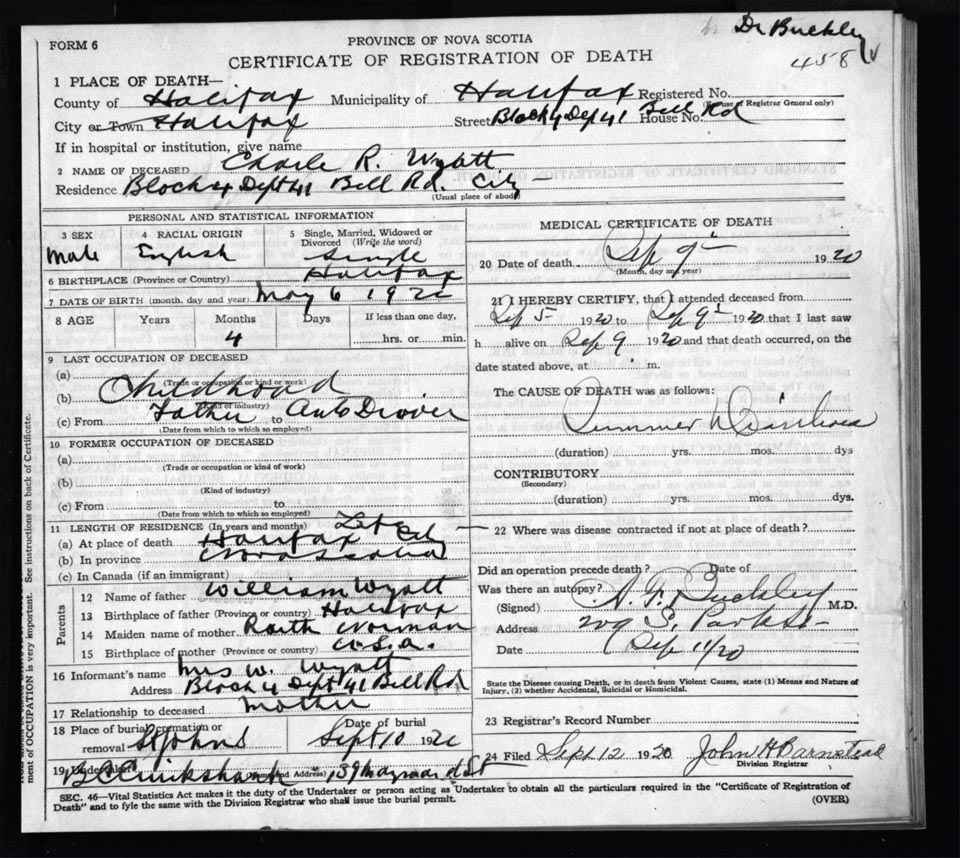 Dr Buckley
458
FORM 6
PROVINCE OF NOVA SCOTIA
CERTIFICATE OF REGISTRATION OF DEATH
1 PLACE OF DEATH—
County of Halifax Municipality of Halifax Registered No.
(For use of Registrar General only)
City or Town Halifax Street Block 4 Dept 41 Bell Rd House No.
If in hospital or institution, give name
2 NAME OF DECEASED Charle R. Wyatt
Residence Block 4 Dept 41 Bell Rd. City
(Usual place of abode)
PERSONAL AND STATISTICAL INFORMATION
3 SEX
Male
4 RACIAL ORIGIN
English
5 Single, Married, Widowed or Divorced (Write the word)
Single
6 BIRTHPLACE (Province or Country) Halifax
7 DATE OF BIRTH (month, day and year) May 6 192
8 AGE Years Months Days If less than one day,
4 hrs. or min.
9 LAST OCCUPATION OF DECEASED
(a)
(Trade or occupation or kind or work)
(b) Childhood
(Kind of industry)
(c) From Father to Auto Driver
(Date from which to which so employed)
10 FORMER OCCUPATION OF DECEASED
(a)
(Trade or occupation or kind of work)
(b)
(Kind of industry)
(c) From to
(Date from which to which so employed)
11 LENGTH OF RESIDENCE (In years and months) Life
(a) At place of death Halifax City
(b) In province Nova Scotia
(c) In Canada (if an immigrant)
Parents
12 Name of father William Wyatt
13 Birthplace of father (Province or country) Halifax
14 Maiden name of mother Norman
15 Birthplace of mother (Province or country) U.S.a.
16 Informant's name Mrs W. Wyatt
Address Block 4 Dept 41 Bell Rd
17 Relationship to deceased Mother
18 Place of burial, cremation or removal St Johns
Date of burial Sept 10 192
19 Undertaker Cruikshank (Name and Address) 139 Maynard St
MEDICAL CERTIFICATE OF DEATH
20 Date of death Sep 9th 1920
(Month, day and year)
21 I HEREBY CERTIFY, that I attended deceased from
Sep 5 1920 to Sep 9th 1920 that I last saw
h alive on Sep 9 1920 and that death occurred, on the
date stated above, at m.
The CAUSE OF DEATH was as follows:
Summer Diarrhoea
(duration) yrs. mos. dys
CONTRIBUTORY
(Secondary)
(duration) yrs. mos. dys.
22 Where was disease contracted if not at place of death?
Did an operation precede death? Date of
Was there an autopsy?
(Signed) A. F. Buckley M.D.
Address 209 S. Park St
Date Sep 11/20
State the Disease causing Death, or in death from Violent Causes, state (1) Means and Nature of
Injury, (2) whether Accidental, Suicidal or Homicidal.
23 Registrar's Record Number
24 Filed Sept 12 1920 John H Barnstead
Division Registrar
SEC. 46—Vital Statistics Act makes it the duty of the Undertaker or person acting as Undertaker to obtain all the particulars required in the "Certificate of Registration of
Death" and to fyle the same with the Division Registrar who shall issue the burial permit.
(OVER)
ment of OCCUPATION is very important. See instructions on back of Certificate.